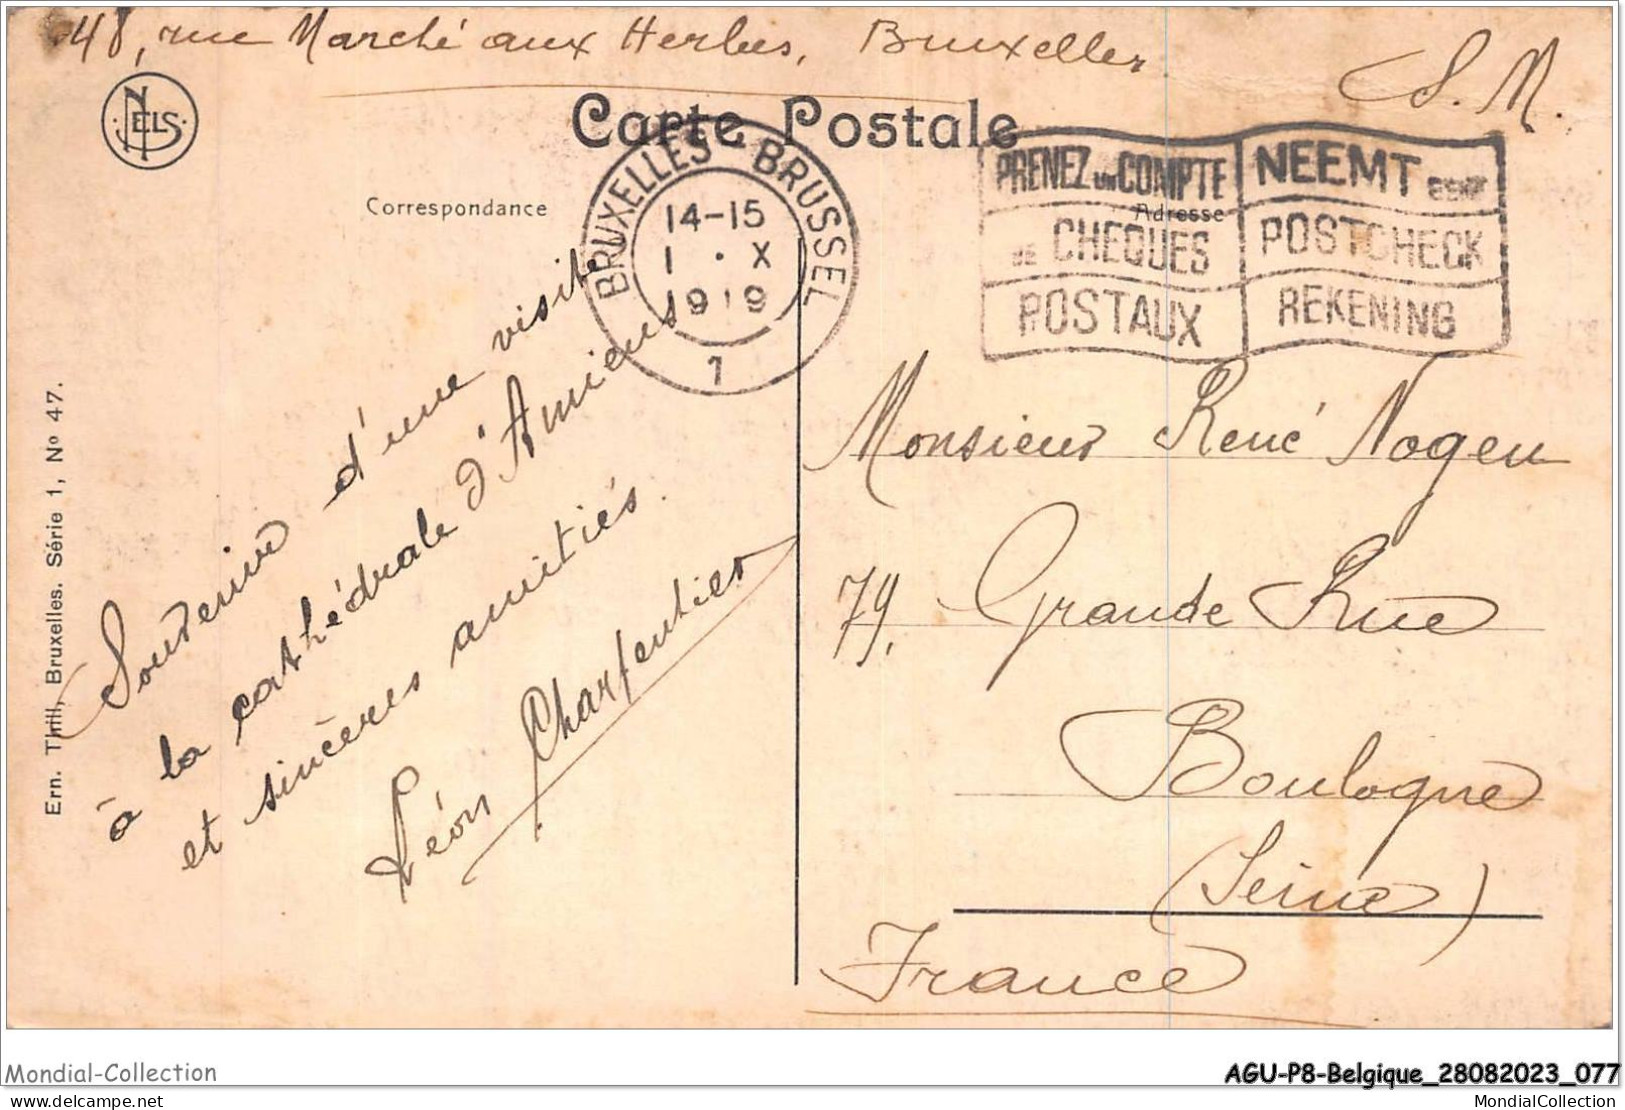 48, rue Marché aux Herbes, Bruxelles
S. M.
NELS
Carte Postale
Correspondance
Adresse
BRUXELLES - BRUSSEL
14-15
1 · X
1919
1
PRENEZ UN COMPTE
DE CHEQUES
POSTAUX
NEEMT EENE
POSTCHECK
REKENING
Souvenir d'une visite
à la cathédrale d'Amiens
et sincères amitiés.
Léon Charpentier
Monsieur René Nogen
79, Grande Rue
Boulogne
(Seine)
France
Ern. Thill, Bruxelles. Série 1, Nº 47.
Mondial-Collection
AGU-P8-Belgique_28082023_077
delcampe.net
MondialCollection